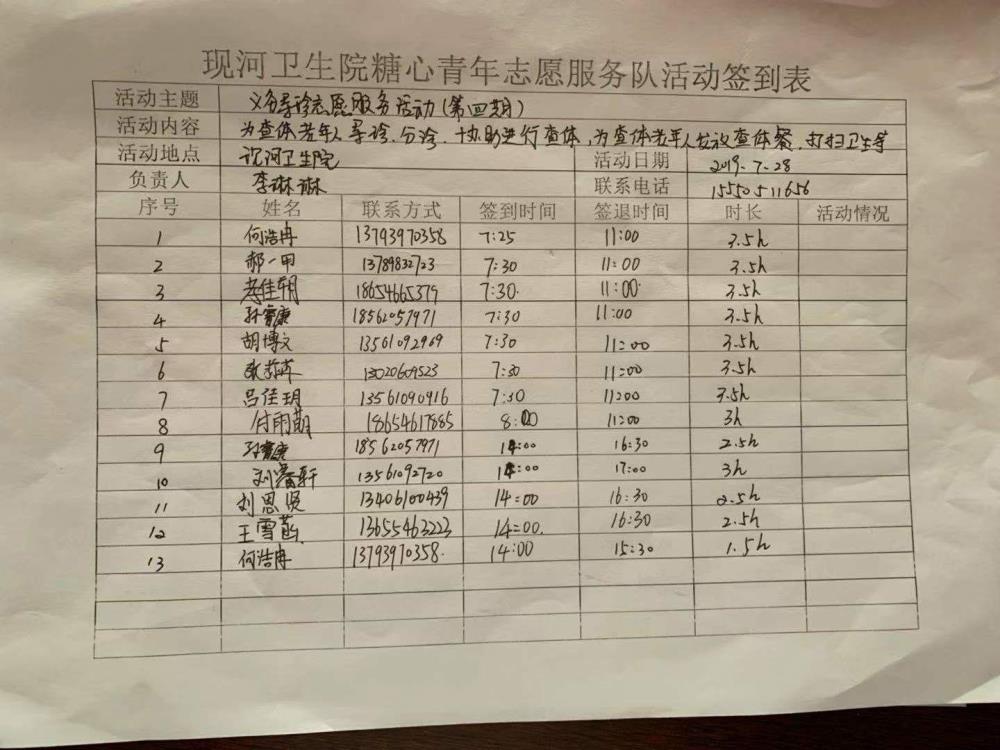 现河卫生院糖心青年志愿服务队活动签到表
活动主题 义务导诊志愿服务活动(第四期)
活动内容 为查体老年人导诊、分诊、协助进行查体,为查体老年人发放查体餐,打扫卫生等
活动地点 现河卫生院 活动日期 2019.7.28
负责人 李琳琳 联系电话 15550511656
序号 姓名 联系方式 签到时间 签退时间 时长 活动情况
1 何浩冉 13793970358 7:25 11:00 3.5h
2 郝一甲 13789832723 7:30 11:00 3.5h
3 佳朝 18654665379 7:30 11:00 3.5h
4 孙睿康 18562057971 7:30 11:00 3.5h
5 胡博文 13561092969 7:30 11:00 3.5h
6 13020609523 7:30 11:00 3.5h
7 吕佳玥 13561090916 7:30 11:00 3.5h
8 付雨萌 18654617885 8:00 11:00 3h
9 孙睿康 18562057971 14:00 16:30 2.5h
10 刘轩 13561092720 14:00 17:00 3h
11 刘思贤 13406100439 14:00 16:30 2.5h
12 王雪菡 13655463223 14:00 16:30 2.5h
13 何浩冉 13793970358 14:00 15:30 1.5h